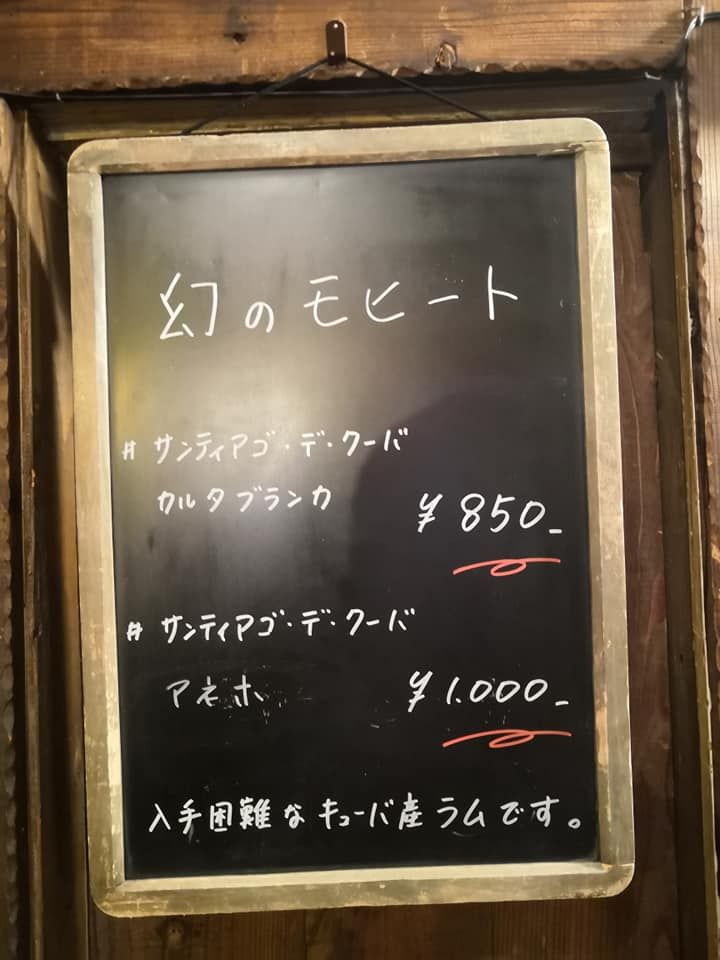 幻のモヒート
# サンティアゴ・デ・クーバ
カルタブランカ ¥850-
# サンティアゴ・デ・クーバ
アネホ ¥1.000-
入手困難なキューバ産ラムです。